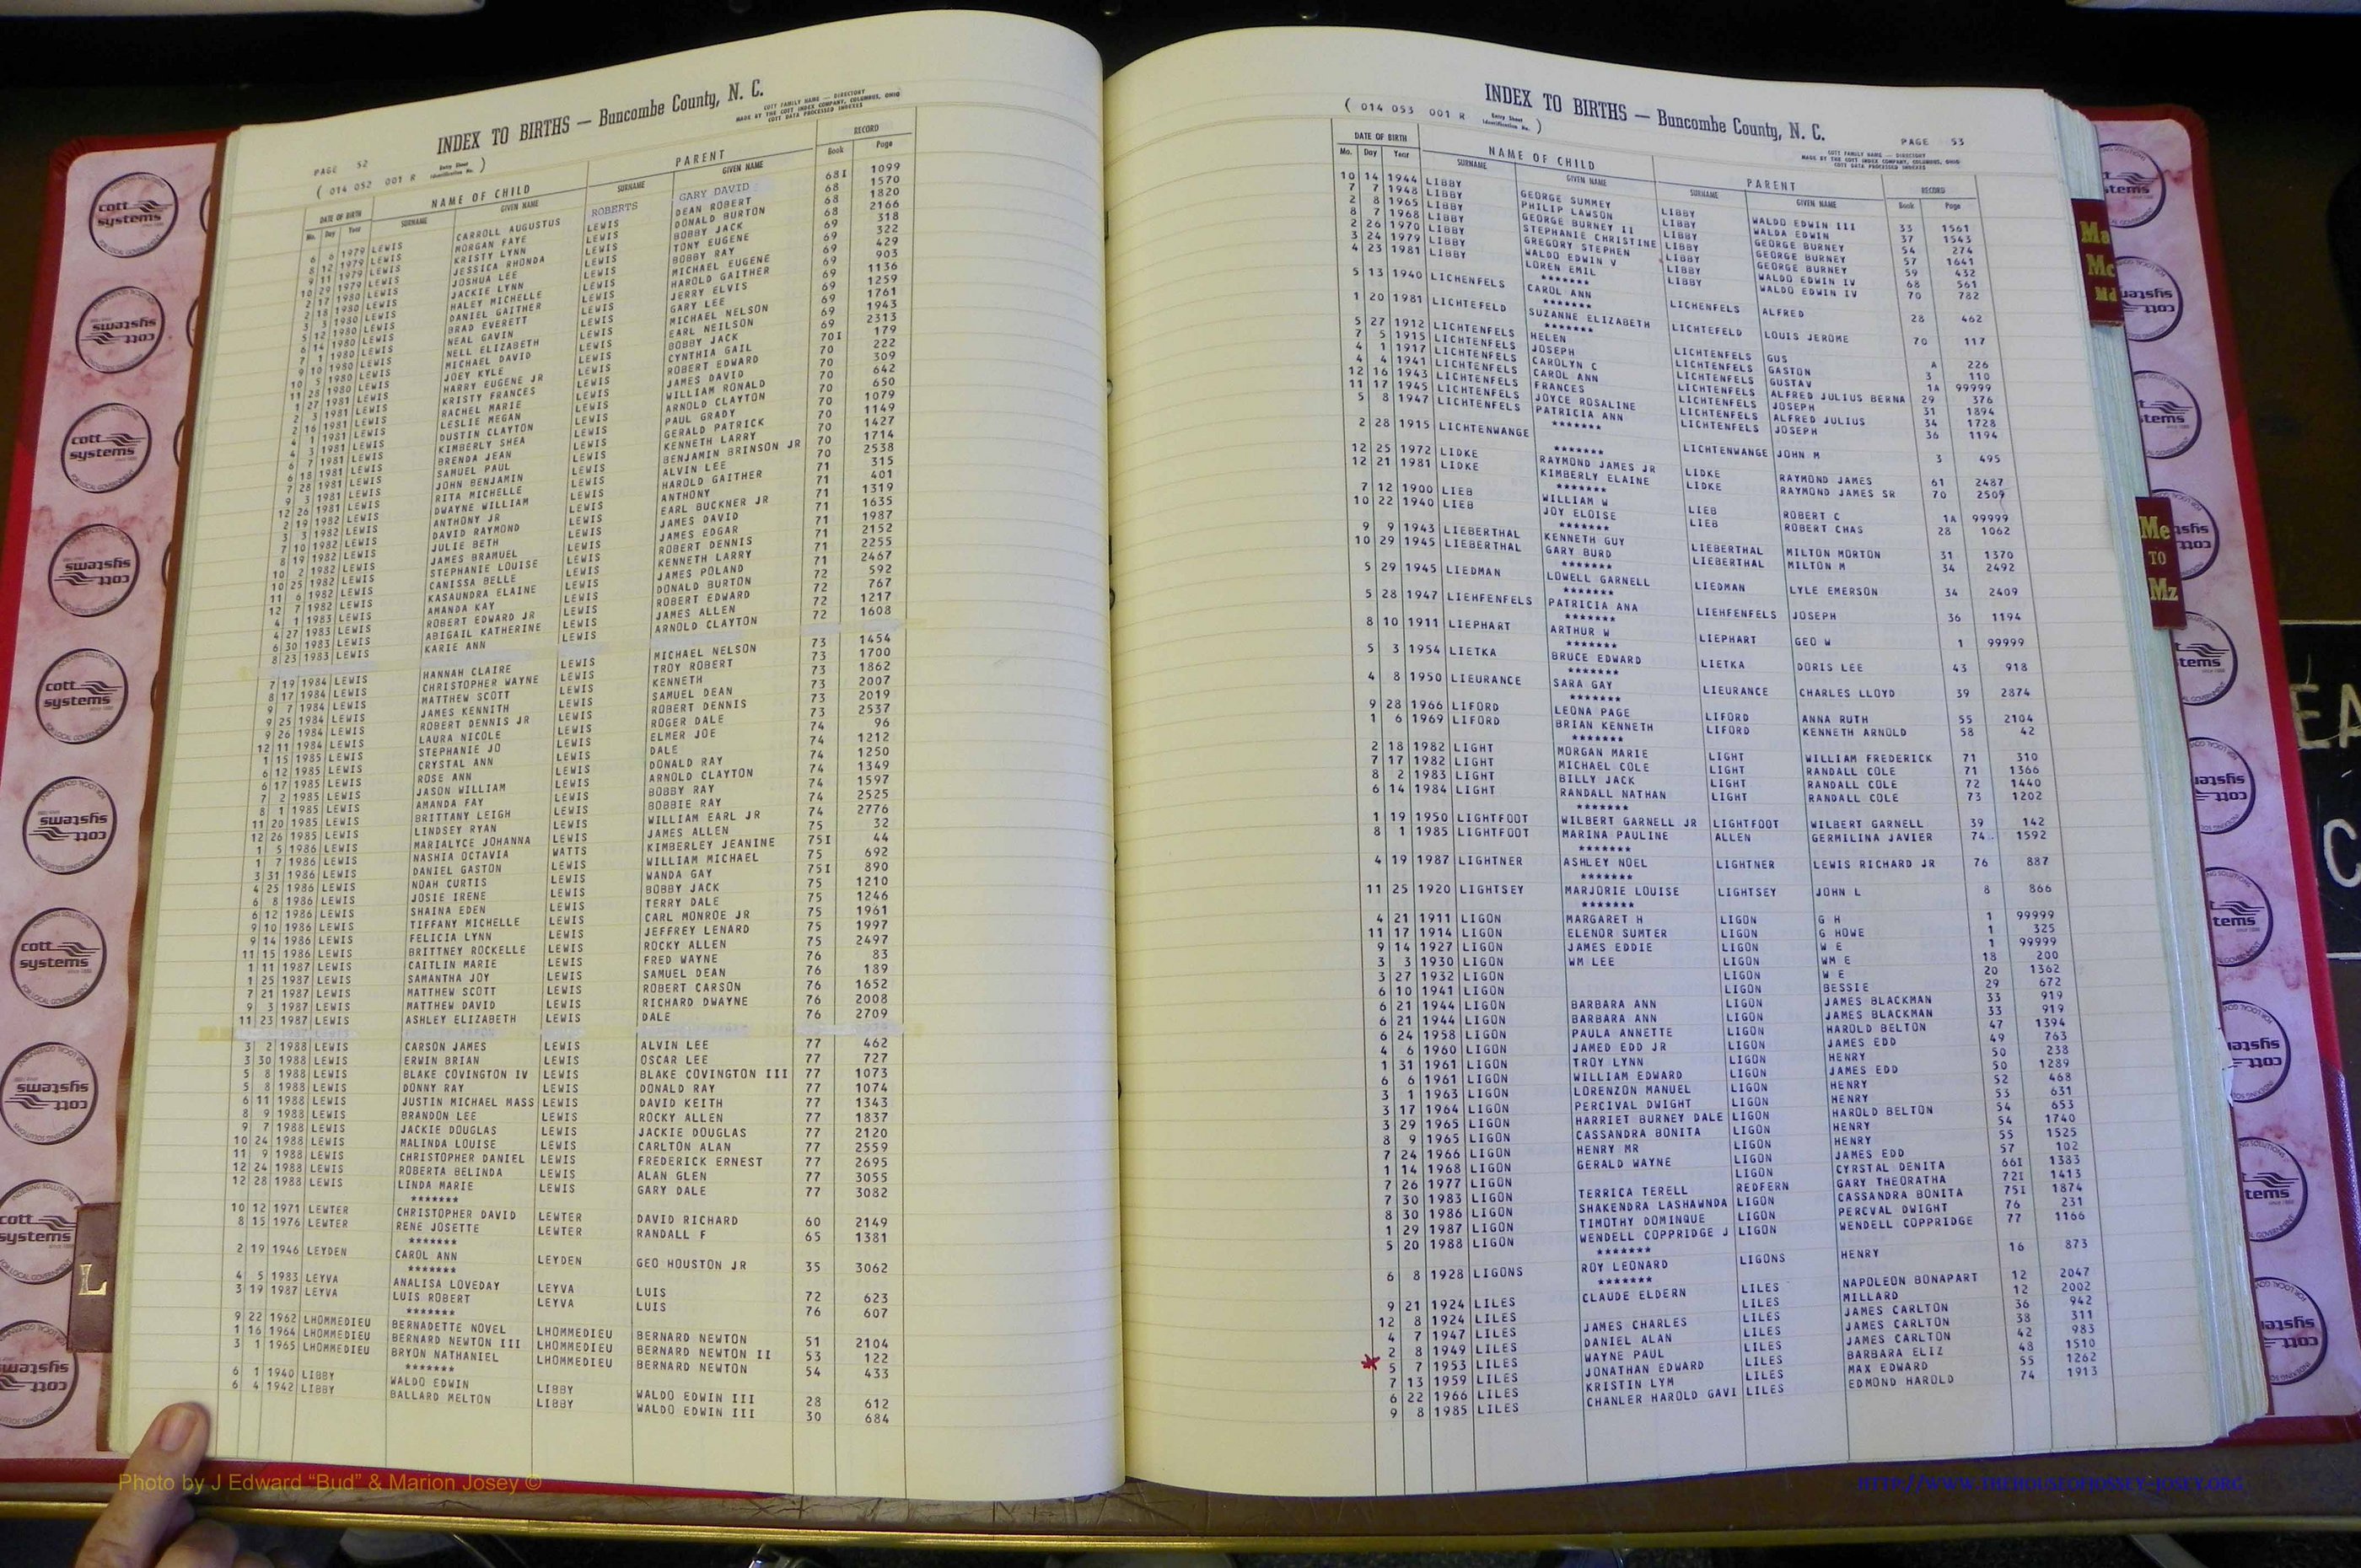 INDEX TO BIRTHS — Buncombe County, N. C.
COTT FAMILY NAME — DIRECTORY
MADE BY THE COTT INDEX COMPANY, COLUMBUS, OHIO
COTT DATA PROCESSED INDEXES
PAGE 52
( 014 052 001 R Entry Sheet Identification No. )
DATE OF BIRTH NAME OF CHILD PARENT RECORD
Mo. Day Year SURNAME GIVEN NAME SURNAME GIVEN NAME Book Page
6 6 1979 LEWIS CARROLL AUGUSTUS ROBERTS GARY DAVID 68I 1099
8 12 1979 LEWIS MORGAN FAYE LEWIS DEAN ROBERT 68 1570
9 11 1979 LEWIS KRISTY LYNN LEWIS DONALD BURTON 68 1820
10 29 1979 LEWIS JESSICA RHONDA LEWIS BOBBY JACK 68 2166
2 17 1980 LEWIS JOSHUA LEE LEWIS TONY EUGENE 69 318
2 18 1980 LEWIS JACKIE LYNN LEWIS BOBBY RAY 69 322
3 3 1980 LEWIS HALEY MICHELLE LEWIS MICHAEL EUGENE 69 429
5 12 1980 LEWIS DANIEL GAITHER LEWIS HAROLD GAITHER 69 903
6 14 1980 LEWIS BRAD EVERETT LEWIS JERRY ELVIS 69 1136
7 1 1980 LEWIS NEAL GAVIN LEWIS GARY LEE 69 1259
9 10 1980 LEWIS NELL ELIZABETH LEWIS MICHAEL NELSON 69 1761
10 5 1980 LEWIS MICHAEL DAVID LEWIS EARL NEILSON 69 1943
11 28 1980 LEWIS JOEY KYLE LEWIS BOBBY JACK 69 2313
1 27 1981 LEWIS HARRY EUGENE JR LEWIS CYNTHIA GAIL 70I 179
2 3 1981 LEWIS KRISTY FRANCES LEWIS ROBERT EDWARD 70 222
2 16 1981 LEWIS RACHEL MARIE LEWIS JAMES DAVID 70 309
4 1 1981 LEWIS LESLIE MEGAN LEWIS WILLIAM RONALD 70 642
4 3 1981 LEWIS DUSTIN CLAYTON LEWIS ARNOLD CLAYTON 70 650
6 7 1981 LEWIS KIMBERLY SHEA LEWIS PAUL GRADY 70 1079
6 18 1981 LEWIS BRENDA JEAN LEWIS GERALD PATRICK 70 1149
7 28 1981 LEWIS SAMUEL PAUL LEWIS KENNETH LARRY 70 1427
9 3 1981 LEWIS JOHN BENJAMIN LEWIS BENJAMIN BRINSON JR 70 1714
12 26 1981 LEWIS RITA MICHELLE LEWIS ALVIN LEE 70 2538
2 19 1982 LEWIS DWAYNE WILLIAM LEWIS HAROLD GAITHER 71 315
3 3 1982 LEWIS ANTHONY JR LEWIS ANTHONY 71 401
7 10 1982 LEWIS DAVID RAYMOND LEWIS EARL BUCKNER JR 71 1319
8 19 1982 LEWIS JULIE BETH LEWIS JAMES DAVID 71 1635
10 2 1982 LEWIS JAMES BRAMUEL LEWIS JAMES EDGAR 71 1987
10 25 1982 LEWIS STEPHANIE LOUISE LEWIS ROBERT DENNIS 71 2152
11 6 1982 LEWIS CANISSA BELLE LEWIS KENNETH LARRY 71 2255
12 7 1982 LEWIS KASAUNDRA ELAINE LEWIS JAMES POLAND 71 2467
4 1 1983 LEWIS AMANDA KAY LEWIS DONALD BURTON 72 592
4 27 1983 LEWIS ROBERT EDWARD JR LEWIS ROBERT EDWARD 72 767
6 30 1983 LEWIS ABIGAIL KATHERINE LEWIS JAMES ALLEN 72 1217
8 23 1983 LEWIS KARIE ANN LEWIS ARNOLD CLAYTON 72 1608
7 19 1984 LEWIS HANNAH CLAIRE LEWIS MICHAEL NELSON 73 1454
8 17 1984 LEWIS CHRISTOPHER WAYNE LEWIS TROY ROBERT 73 1700
9 7 1984 LEWIS MATTHEW SCOTT LEWIS KENNETH 73 1862
9 25 1984 LEWIS JAMES KENNITH LEWIS SAMUEL DEAN 73 2007
9 26 1984 LEWIS ROBERT DENNIS JR LEWIS ROBERT DENNIS 73 2019
12 11 1984 LEWIS LAURA NICOLE LEWIS ROGER DALE 73 2537
1 15 1985 LEWIS STEPHANIE JO LEWIS ELMER JOE 74 96
6 12 1985 LEWIS CRYSTAL ANN LEWIS DALE 74 1212
6 17 1985 LEWIS ROSE ANN LEWIS DONALD RAY 74 1250
7 2 1985 LEWIS JASON WILLIAM LEWIS ARNOLD CLAYTON 74 1349
8 1 1985 LEWIS AMANDA FAY LEWIS BOBBY RAY 74 1597
11 20 1985 LEWIS BRITTANY LEIGH LEWIS BOBBIE RAY 74 2525
12 26 1985 LEWIS LINDSEY RYAN LEWIS WILLIAM EARL JR 74 2776
1 5 1986 LEWIS MARIALYCE JOHANNA LEWIS JAMES ALLEN 75 32
1 7 1986 LEWIS NASHIA OCTAVIA WATTS KIMBERLEY JEANINE 75I 44
3 31 1986 LEWIS DANIEL GASTON LEWIS WILLIAM MICHAEL 75 692
4 25 1986 LEWIS NOAH CURTIS LEWIS WANDA GAY 75I 890
6 8 1986 LEWIS JOSIE IRENE LEWIS BOBBY JACK 75 1210
6 12 1986 LEWIS SHAINA EDEN LEWIS TERRY DALE 75 1246
9 10 1986 LEWIS TIFFANY MICHELLE LEWIS CARL MONROE JR 75 1961
9 14 1986 LEWIS FELICIA LYNN LEWIS JEFFREY LENARD 75 1997
11 15 1986 LEWIS BRITTNEY ROCKELLE LEWIS ROCKY ALLEN 75 2497
1 11 1987 LEWIS CAITLIN MARIE LEWIS FRED WAYNE 76 83
1 25 1987 LEWIS SAMANTHA JOY LEWIS SAMUEL DEAN 76 189
7 21 1987 LEWIS MATTHEW SCOTT LEWIS ROBERT CARSON 76 1652
9 3 1987 LEWIS MATTHEW DAVID LEWIS RICHARD DWAYNE 76 2008
11 23 1987 LEWIS ASHLEY ELIZABETH LEWIS DALE 76 2709
3 2 1988 LEWIS CARSON JAMES LEWIS ALVIN LEE 77 462
3 30 1988 LEWIS ERWIN BRIAN LEWIS OSCAR LEE 77 727
5 8 1988 LEWIS BLAKE COVINGTON IV LEWIS BLAKE COVINGTON III 77 1073
5 8 1988 LEWIS DONNY RAY LEWIS DONALD RAY 77 1074
6 11 1988 LEWIS JUSTIN MICHAEL MASS LEWIS DAVID KEITH 77 1343
8 9 1988 LEWIS BRANDON LEE LEWIS ROCKY ALLEN 77 1837
9 7 1988 LEWIS JACKIE DOUGLAS LEWIS JACKIE DOUGLAS 77 2120
10 24 1988 LEWIS MALINDA LOUISE LEWIS CARLTON ALAN 77 2559
11 9 1988 LEWIS CHRISTOPHER DANIEL LEWIS FREDERICK ERNEST 77 2695
12 24 1988 LEWIS ROBERTA BELINDA LEWIS ALAN GLEN 77 3055
12 28 1988 LEWIS LINDA MARIE LEWIS GARY DALE 77 3082
*******
10 12 1971 LEWTER CHRISTOPHER DAVID LEWTER DAVID RICHARD 60 2149
8 15 1976 LEWTER RENE JOSETTE LEWTER RANDALL F 65 1381
*******
2 19 1946 LEYDEN CAROL ANN LEYDEN GEO HOUSTON JR 35 3062
*******
4 5 1983 LEYVA ANALISA LOVEDAY LEYVA LUIS 72 623
3 19 1987 LEYVA LUIS ROBERT LEYVA LUIS 76 607
*******
9 22 1962 LHOMMEDIEU BERNADETTE NOVEL LHOMMEDIEU BERNARD NEWTON 51 2104
1 16 1964 LHOMMEDIEU BERNARD NEWTON III LHOMMEDIEU BERNARD NEWTON II 53 122
3 1 1965 LHOMMEDIEU BRYON NATHANIEL LHOMMEDIEU BERNARD NEWTON 54 433
*******
6 1 1940 LIBBY WALDO EDWIN LIBBY WALDO EDWIN III 28 612
6 4 1942 LIBBY BALLARD MELTON LIBBY WALDO EDWIN III 30 684
INDEX TO BIRTHS — Buncombe County, N. C.
( 014 053 001 R Entry Sheet Identification No. )
PAGE 53
COTT FAMILY NAME — DIRECTORY
MADE BY THE COTT INDEX COMPANY, COLUMBUS, OHIO
COTT DATA PROCESSED INDEXES
DATE OF BIRTH NAME OF CHILD PARENT RECORD
Mo. Day Year SURNAME GIVEN NAME SURNAME GIVEN NAME Book Page
10 14 1944 LIBBY GEORGE SUMMEY LIBBY WALDO EDWIN III 33 1561
7 7 1948 LIBBY PHILIP LAWSON LIBBY WALDA EDWIN 37 1543
2 8 1965 LIBBY GEORGE BURNEY II LIBBY GEORGE BURNEY 54 274
8 7 1968 LIBBY STEPHANIE CHRISTINE LIBBY GEORGE BURNEY 57 1641
2 26 1970 LIBBY GREGORY STEPHEN LIBBY GEORGE BURNEY 59 432
3 24 1979 LIBBY WALDO EDWIN V LIBBY WALDO EDWIN IV 68 561
4 23 1981 LIBBY LOREN EMIL LIBBY WALDO EDWIN IV 70 782
*******
5 13 1940 LICHENFELS CAROL ANN LICHENFELS ALFRED 28 462
*******
1 20 1981 LICHTEFELD SUZANNE ELIZABETH LICHTEFELD LOUIS JEROME 70 117
*******
5 27 1912 LICHTENFELS HELEN LICHTENFELS GUS A 226
7 5 1915 LICHTENFELS JOSEPH LICHTENFELS GASTON 3 110
4 1 1917 LICHTENFELS CAROLYN C LICHTENFELS GUSTAV 1A 99999
4 4 1941 LICHTENFELS CAROL ANN LICHTENFELS ALFRED JULIUS BERNA 29 376
12 16 1943 LICHTENFELS FRANCES LICHTENFELS JOSEPH 31 1894
11 17 1945 LICHTENFELS JOYCE ROSALINE LICHTENFELS ALFRED JULIUS 34 1728
5 8 1947 LICHTENFELS PATRICIA ANN LICHTENFELS JOSEPH 36 1194
*******
2 28 1915 LICHTENWANGE LICHTENWANGE JOHN M 3 495
*******
12 25 1972 LIDKE RAYMOND JAMES JR LIDKE RAYMOND JAMES 61 2487
12 21 1981 LIDKE KIMBERLY ELAINE LIDKE RAYMOND JAMES SR 70 2509
*******
7 12 1900 LIEB WILLIAM W LIEB ROBERT C 1A 99999
10 22 1940 LIEB JOY ELOISE LIEB ROBERT CHAS 28 1062
*******
9 9 1943 LIEBERTHAL KENNETH GUY LIEBERTHAL MILTON MORTON 31 1370
10 29 1945 LIEBERTHAL GARY BURD LIEBERTHAL MILTON M 34 2492
*******
5 29 1945 LIEDMAN LOWELL GARNELL LIEDMAN LYLE EMERSON 34 2409
*******
5 28 1947 LIEHFENFELS PATRICIA ANA LIEHFENFELS JOSEPH 36 1194
*******
8 10 1911 LIEPHART ARTHUR W LIEPHART GEO W 1 99999
*******
5 3 1954 LIETKA BRUCE EDWARD LIETKA DORIS LEE 43 918
*******
4 8 1950 LIEURANCE SARA GAY LIEURANCE CHARLES LLOYD 39 2874
*******
9 28 1966 LIFORD LEONA PAGE LIFORD ANNA RUTH 55 2104
1 6 1969 LIFORD BRIAN KENNETH LIFORD KENNETH ARNOLD 58 42
*******
2 18 1982 LIGHT MORGAN MARIE LIGHT WILLIAM FREDERICK 71 310
7 17 1982 LIGHT MICHAEL COLE LIGHT RANDALL COLE 71 1366
8 2 1983 LIGHT BILLY JACK LIGHT RANDALL COLE 72 1440
6 14 1984 LIGHT RANDALL NATHAN LIGHT RANDALL COLE 73 1202
*******
1 19 1950 LIGHTFOOT WILBERT GARNELL JR LIGHTFOOT WILBERT GARNELL 39 142
8 1 1985 LIGHTFOOT MARINA PAULINE ALLEN GERMILINA JAVIER 74 1592
*******
4 19 1987 LIGHTNER ASHLEY NOEL LIGHTNER LEWIS RICHARD JR 76 887
*******
11 25 1920 LIGHTSEY MARJORIE LOUISE LIGHTSEY JOHN L 8 866
*******
4 21 1911 LIGON MARGARET H LIGON G H 1 99999
11 17 1914 LIGON ELENOR SUMTER LIGON G HOWE 1 325
9 14 1927 LIGON JAMES EDDIE LIGON W E 1 99999
3 3 1930 LIGON WM LEE LIGON WM E 18 200
3 27 1932 LIGON LIGON W E 20 1362
6 10 1941 LIGON LIGON BESSIE 29 672
6 21 1944 LIGON BARBARA ANN LIGON JAMES BLACKMAN 33 919
6 21 1944 LIGON BARBARA ANN LIGON JAMES BLACKMAN 33 919
6 24 1958 LIGON PAULA ANNETTE LIGON HAROLD BELTON 47 1394
4 6 1960 LIGON JAMED EDD JR LIGON JAMES EDD 49 763
1 31 1961 LIGON TROY LYNN LIGON HENRY 50 238
6 6 1961 LIGON WILLIAM EDWARD LIGON JAMES EDD 50 1289
3 1 1963 LIGON LORENZON MANUEL LIGON HENRY 52 468
3 17 1964 LIGON PERCIVAL DWIGHT LIGON HENRY 53 631
3 29 1965 LIGON HARRIET BURNEY DALE LIGON HAROLD BELTON 54 653
8 9 1965 LIGON CASSANDRA BONITA LIGON HENRY 54 1740
7 24 1966 LIGON HENRY MR LIGON HENRY 55 1525
1 14 1968 LIGON GERALD WAYNE LIGON JAMES EDD 57 102
7 26 1977 LIGON LIGON CYRSTAL DENITA 66I 1383
7 30 1983 LIGON TERRICA TERELL REDFERN GARY THEORATHA 72I 1413
8 30 1986 LIGON SHAKENDRA LASHAWNDA LIGON CASSANDRA BONITA 75I 1874
1 29 1987 LIGON TIMOTHY DOMINQUE LIGON PERCVAL DWIGHT 76 231
5 20 1988 LIGON WENDELL COPPRIDGE J LIGON WENDELL COPPRIDGE 77 1166
*******
6 8 1928 LIGONS ROY LEONARD LIGONS HENRY 16 873
*******
9 21 1924 LILES CLAUDE ELDERN LILES NAPOLEON BONAPART 12 2047
12 8 1924 LILES LILES MILLARD 12 2002
4 7 1947 LILES JAMES CHARLES LILES JAMES CARLTON 36 942
2 8 1949 LILES DANIEL ALAN LILES JAMES CARLTON 38 311
5 7 1953 LILES WAYNE PAUL LILES JAMES CARLTON 42 983
7 13 1959 LILES JONATHAN EDWARD LILES BARBARA ELIZ 48 1510
6 22 1966 LILES KRISTIN LYM LILES MAX EDWARD 55 1262
9 8 1985 LILES CHANLER HAROLD GAVI LILES EDMOND HAROLD 74 1913
L
Ma
Mc
Md
Me
TO
Mz
cott systems
INDEXING SOLUTIONS
FOR LOCAL GOVERNMENT
Photo by J Edward “Bud” & Marion Josey ©
HTTP://WWW.THEHOUSEOFJOSSEY-JOSEY.ORG